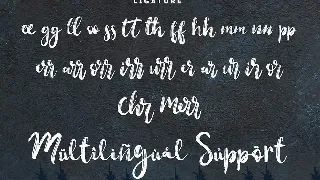 LIGATURE
ee gg ll oo ss tt th ff hh mm nn pp
err arr orr irr urr er ar ur ir or
chr merr
Múltilíñgùál Súppört